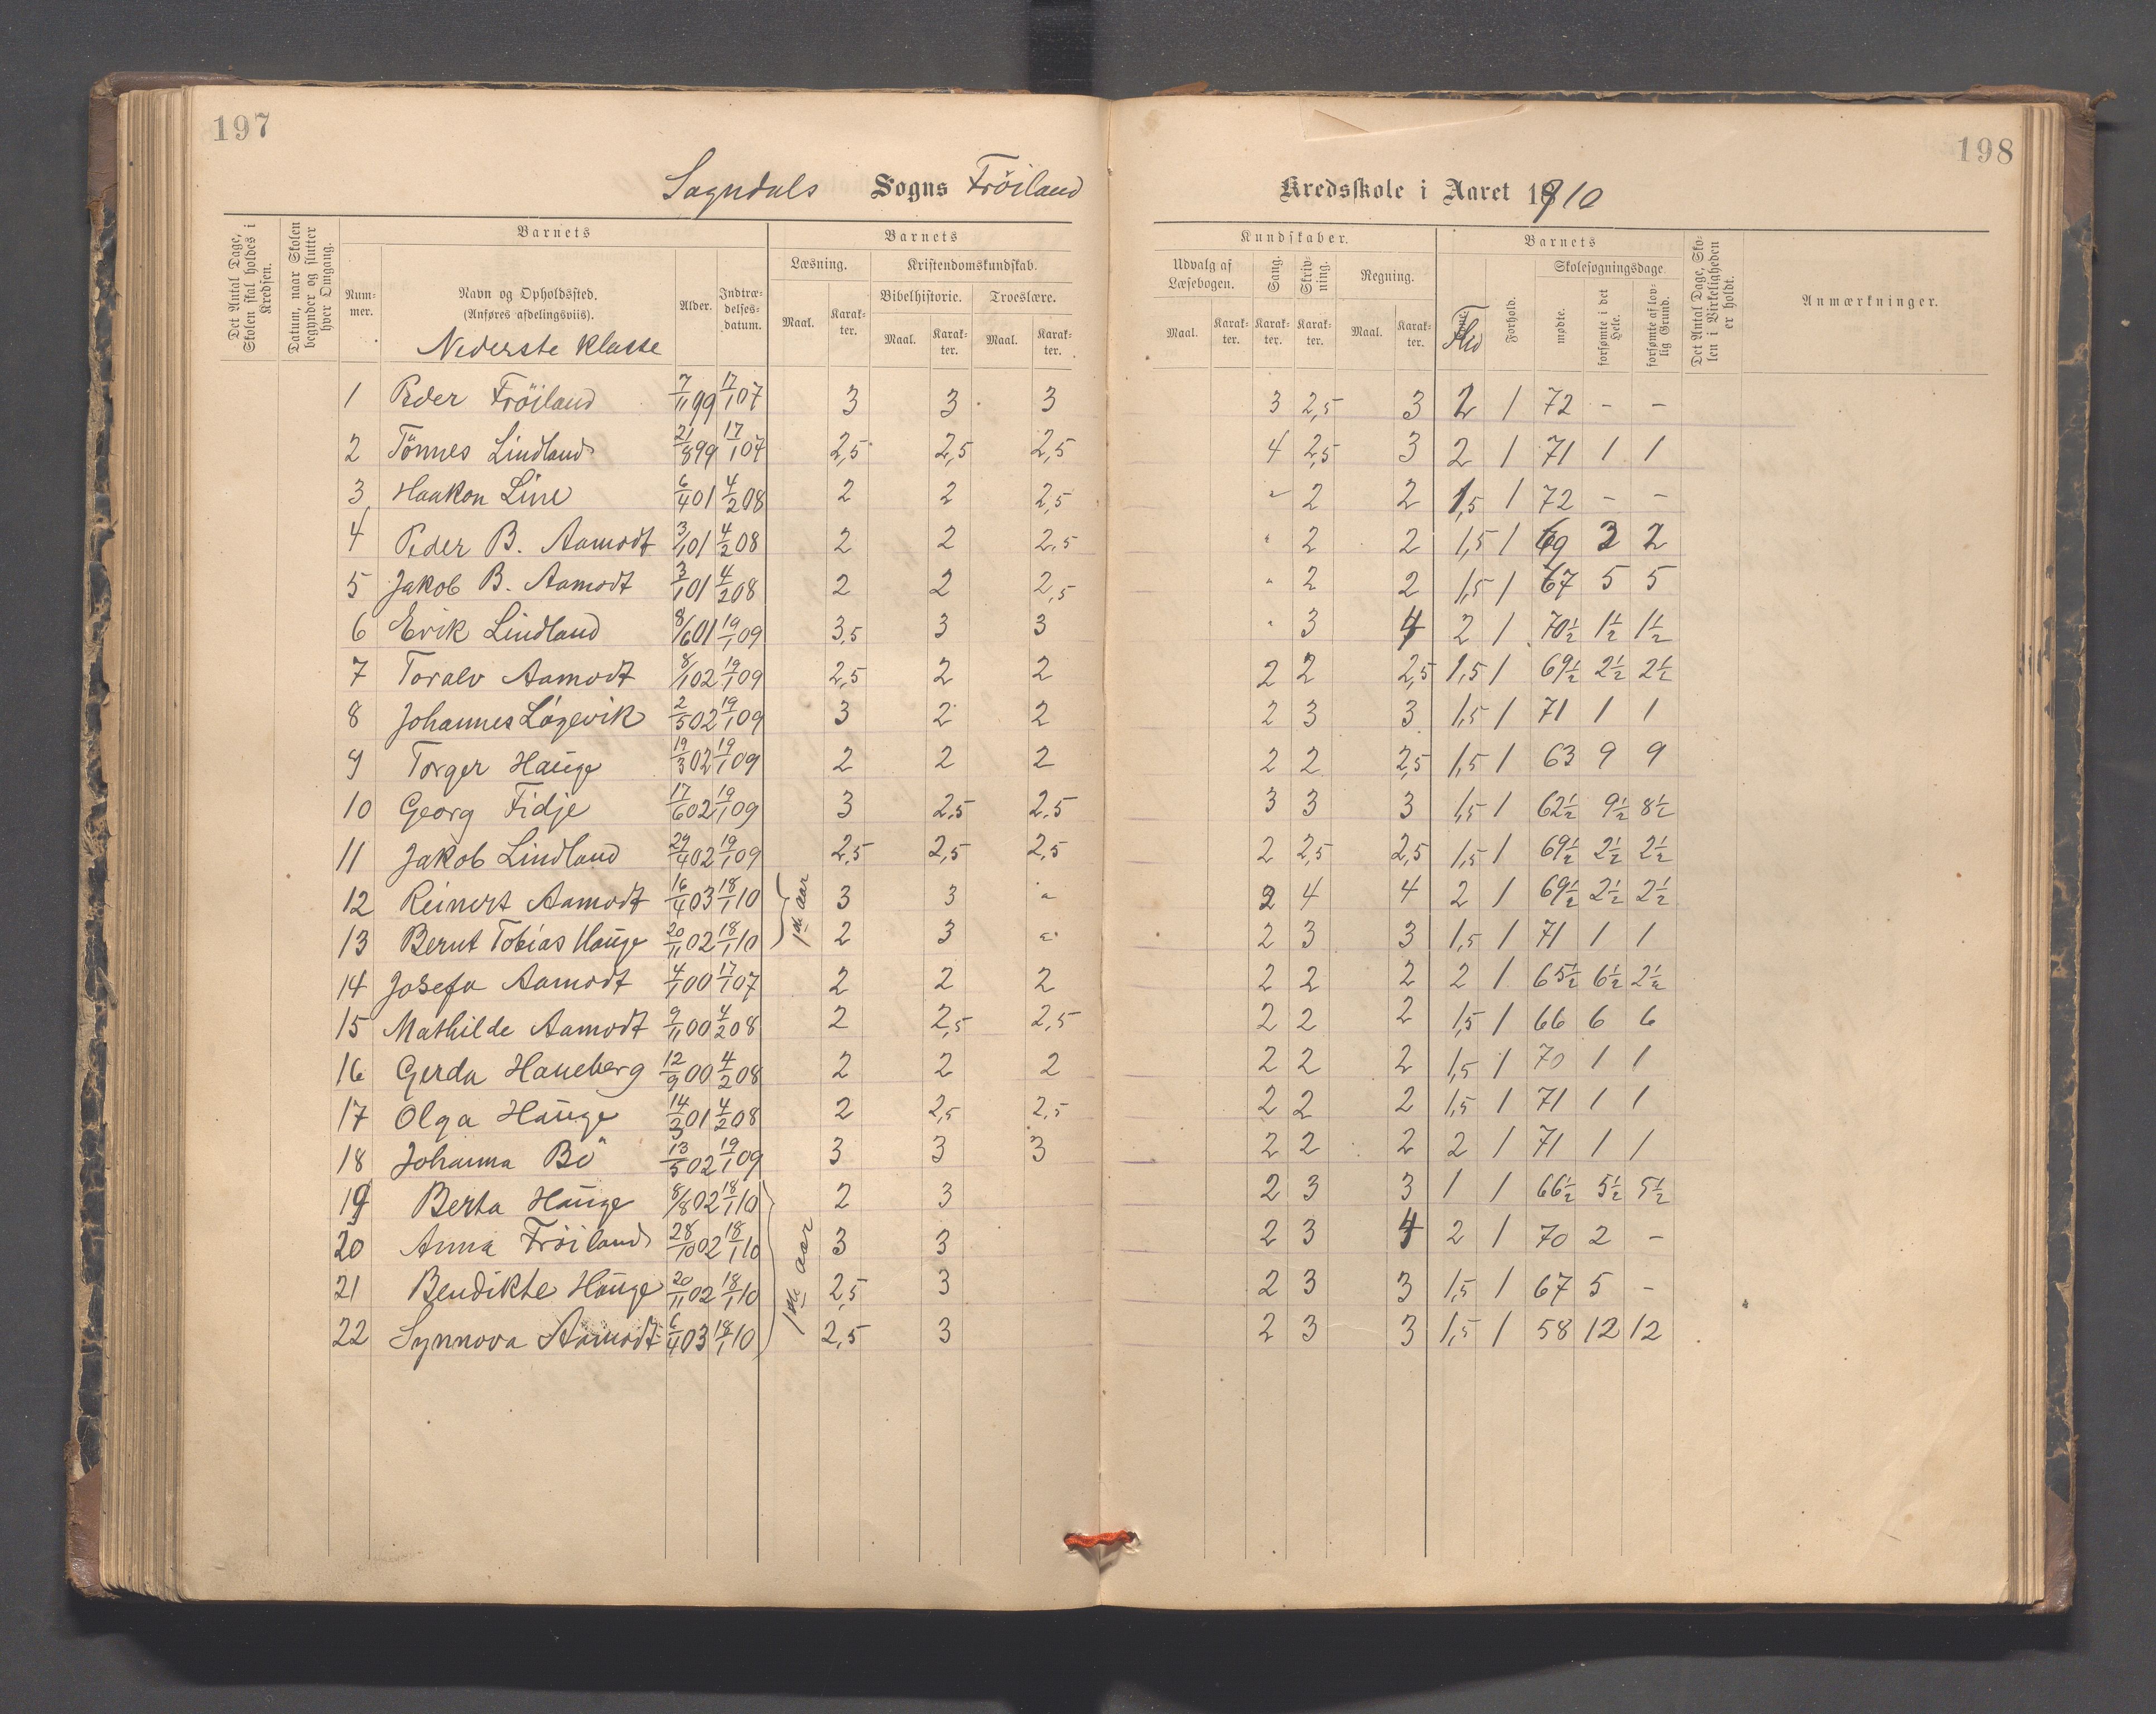 197
198
Sogndals Sogns Fröiland Kredsskole i Aaret 1910
Det Antal Dage, Skolen skal holdes i Kredsen.
Datum, naar Skolen begynder og slutter hver Omgang.
Barnets
Num-mer.
Navn og Opholdssted.
(Anføres afdelingsviis).
Nederste Klasse
Alder.
Indtræ-delses-datum.
Barnets
Læsning.
Maal. Karak-ter.
Kristendomskundskab.
Bibelhistorie. Troeslære.
Maal. Karak-ter. Maal. Karak-ter.
Kundskaber.
Udvalg af Læsebogen.
Maal. Karak-ter.
Sang. Karak-ter.
Skriv-ning. Karak-ter.
Regning.
Maal. Karak-ter.
Barnets
Flid
Forhold.
Skolesøgningsdage.
mødte.
forsømte i det Hele.
forsømte af lov-lig Grund.
Det Antal Dage, Sko-len i Virkeligheden er holdt.
Anmærkninger.
1 Peder Fröiland 7/11 99 17/1 07 3 3 3 3 2,5 3 2 1 72 - -
2 Tönnes Lindland 21/8 99 17/1 07 2,5 2,5 2,5 4 2,5 3 2 1 71 1 1
3 Haakon Line 6/4 01 4/2 08 2 2 2,5 " 2 2 1,5 1 72 - -
4 Peder B. Aamodt 3/1 01 4/2 08 2 2 2,5 " 2 2 1,5 1 69 3 2
5 Jakob B. Aamodt 3/1 01 4/2 08 2 2 2,5 " 2 2 1,5 1 67 5 5
6 Erik Lindland 8/6 01 19/1 09 3,5 3 3 " 3 4 2 1 70½ 1½ 1½
7 Toralv Aamodt 8/1 02 19/1 09 2,5 2 2 2 2 2,5 1,5 1 69½ 2½ 2½
8 Johannes Lögevik 2/5 02 19/1 09 3 2 2 2 3 3 1,5 1 71 1 1
9 Torger Hauge 19/3 02 19/1 09 2 2 2 2 2 2,5 1,5 1 63 9 9
10 Georg Fidje 17/6 02 19/1 09 3 2,5 2,5 3 3 3 1,5 1 62½ 9½ 8½
11 Jakob Lindland 29/4 02 19/1 09 2,5 2,5 2,5 2 2,5 2,5 1,5 1 69½ 2½ 2½
12 Reinert Aamodt 16/4 03 18/1 10 1ste aar 3 3 " 2 4 4 2 1 69½ 2½ 2½
13 Bernt Tobias Hauge 20/11 02 18/1 10 2 3 " 2 3 3 1,5 1 71 1 1
14 Josefa Aamodt 4/1 00 17/1 07 2 2 2 2 2 2 2 1 65½ 6½ 2½
15 Mathilde Aamodt 9/11 00 4/2 08 2 2,5 2,5 2 2 2 1,5 1 66 6 6
16 Gerda Haneberg 12/9 00 4/2 08 2 2 2 2 2 2 1,5 1 70 1 1
17 Olga Hauge 14/3 01 4/2 08 2 2,5 2,5 2 2 2 1,5 1 71 1 1
18 Johanna Bö 13/5 02 19/1 09 3 3 3 2 2 2 2 1 71 1 1
19 Berta Hauge 8/8 02 18/1 10 2 3 2 3 3 1 1 66½ 5½ 5½
20 Anna Fröiland 28/10 02 18/1 10 1ste aar 3 3 2 3 4 2 1 70 2 -
21 Bendikte Hauge 20/11 02 18/1 10 2,5 3 2 3 3 1,5 1 67 5 -
22 Synnova Aamodt 6/4 03 18/1 10 2,5 3 2 3 3 1,5 1 58 12 12